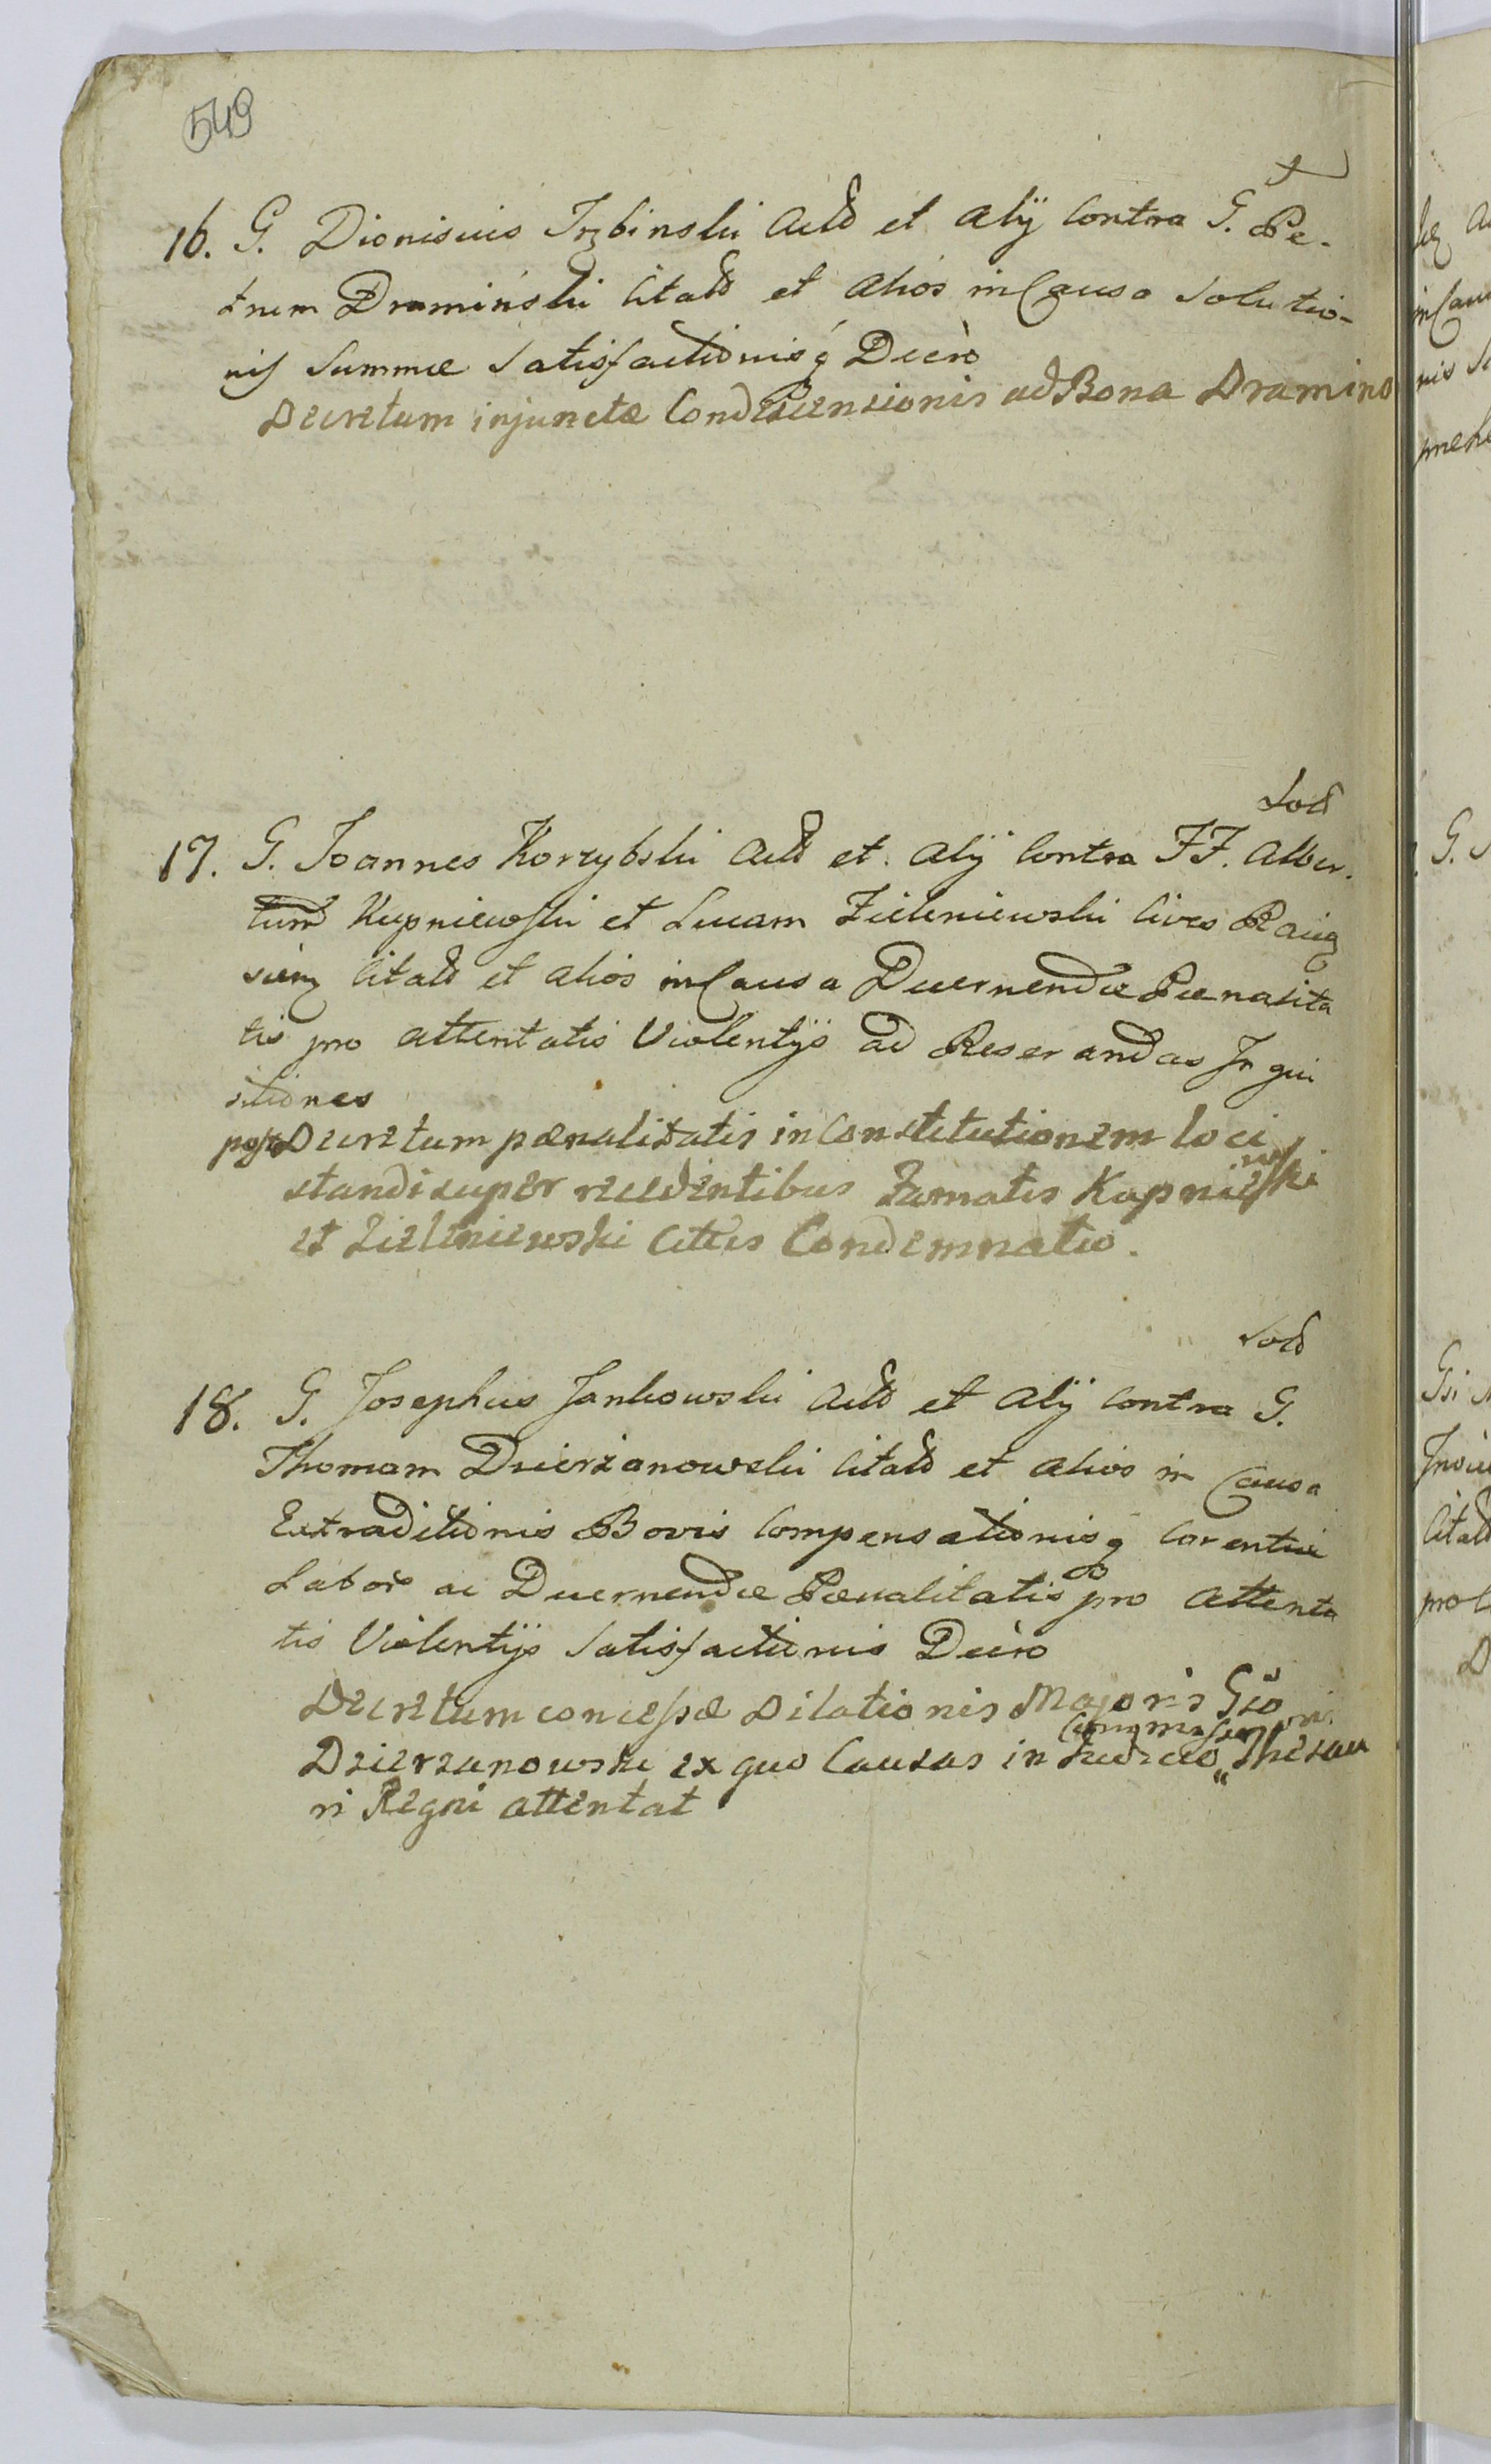 549
16. G. Dionisius Trzbinski Actd et Alÿ Contra G. Pe-
trum Dramiński Citatd et Alios in Causa Solutio-
nis Summæ Satisfactionisq Decro
Decretum injunctæ Condescensionis ad Bona Dramino
Sold
17. G. Joannes Korzybski Actd et Alÿ Contra FF. Alber-
tum Kupniewski et Lucam Zieleniewski Cives Raciąż
sien Citatd et Alios in Causa Decernendæ Pœnalita
tis pro attentatis Violentÿs ad Reserandas Inqui
sitiones
post Decretum pœnalitatis in Constitutionem loci
standi super recedentibus Famatis Kupniewski
et Zieleniewski Cittis Condemnatio.
Sold
18. G. Josephus Jankowski Actd et Alÿ Contra G.
Thomam Dzierżanowski Citatd et Alios in Causa
Extraditionis Bovis Compensationisq Carentiæ
Labor ac Decernendæ Pœnalitatis pro Attenta
tis Violentÿs Satisfactionis Decro
Decretum concessæ Dilationis Majoris Gso
Dzierzanowski ex quo Causas in Judicio Thesau
ri Regni attentat